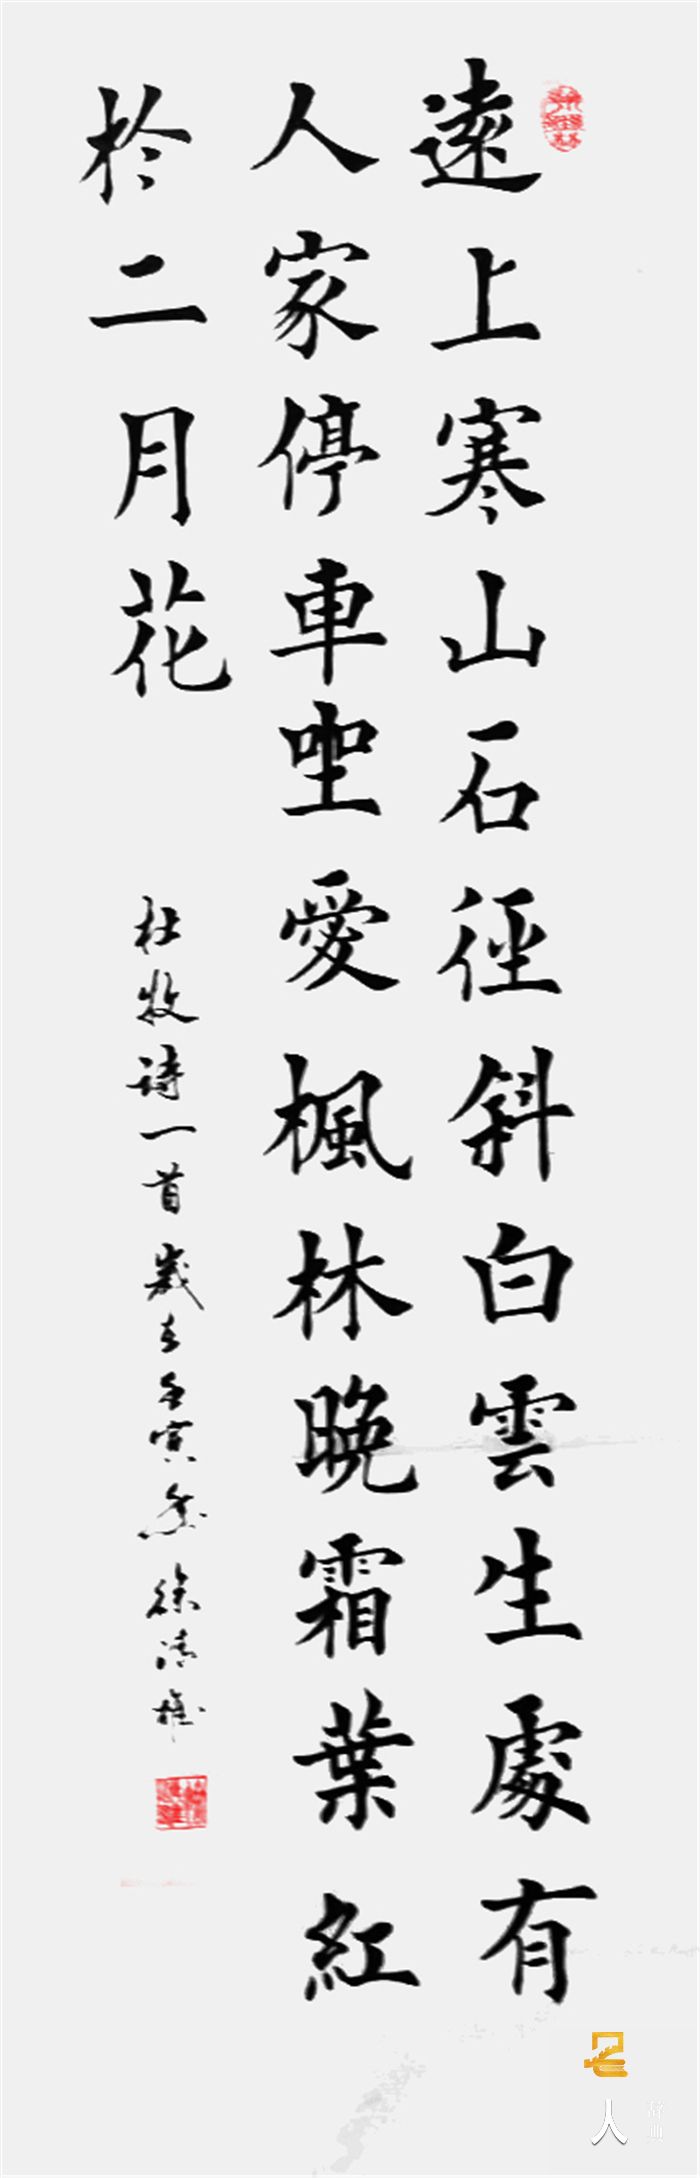 遠上寒山石徑斜白雲生處有
人家停車坐愛楓林晚霜葉紅
於二月花
杜牧詩一首歲在壬寅 徐清
名人
辞典